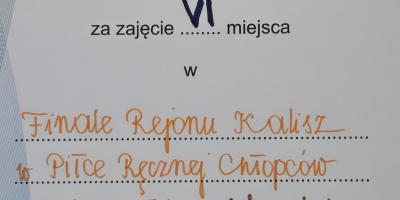 za zajęcie VI miejsca
w
Finale Rejonu Kalisz
w Piłce Ręcznej Chłopców